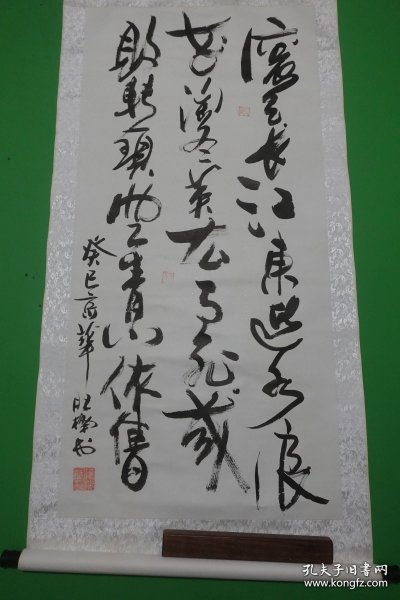 滚滚長江東逝水浪
花淘尽英雄是非成
敗轉頭空青山依舊
癸巳
孔夫子旧书网
www.kongfz.com